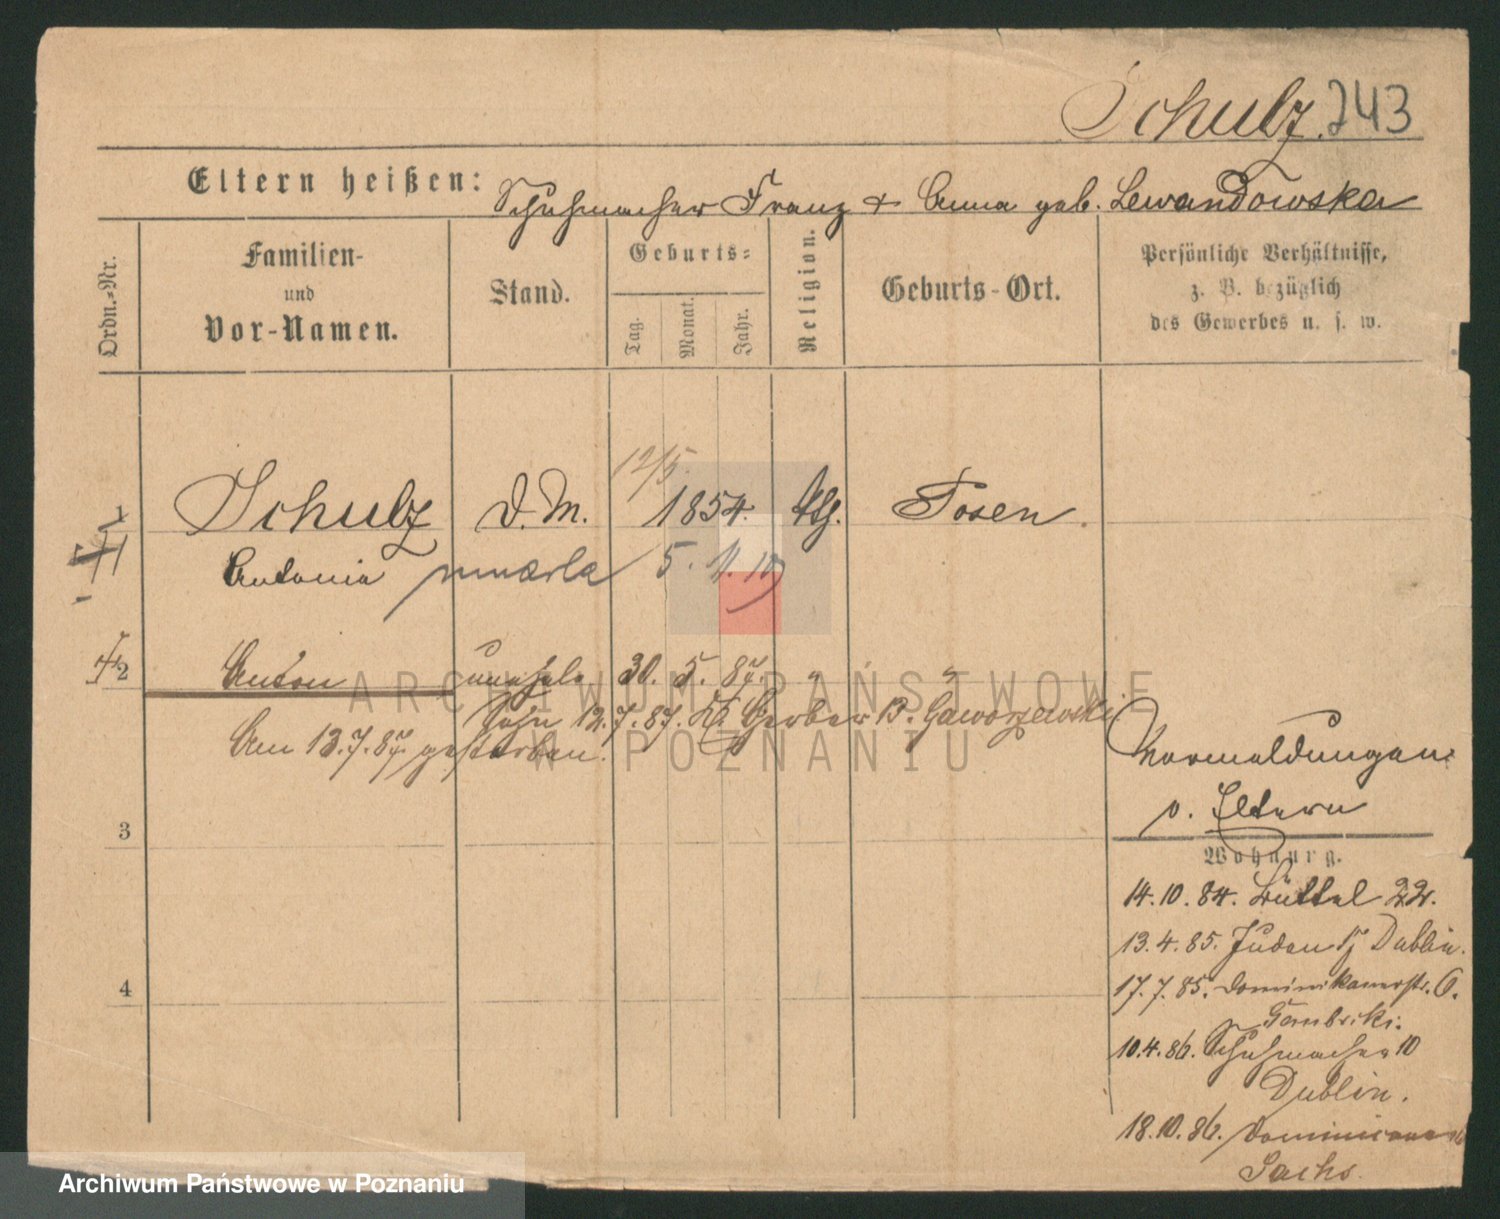 Schulz. 243
Eltern heißen: Schuhmacher Franz + Anna geb. Lewandowska
Ordn.-Nr.
Familien-
und
Vor-Namen.
Stand.
Geburts-
Tag.
Monat.
Jahr.
Religion.
Geburts-Ort.
Persönliche Verhältnisse,
z. B. bezüglich
des Gewerbes u. s. w.
12/5.
1 Schulz D. M. 1854. ktg. Posen.
Antonia zmarła 5.
2 Anton unehel. 30. 5. 87. " "
Sohn 12.7.87. Gerber B. Gaworzewski
Am 13.7.87. gestorben.
ARCHIWUM PAŃSTWOWE
W POZNANIU
Vormeldungen
v. Eltern
3
Wohnung.
14.10.84. Büttel 22.
13.4.85. Juden 15 Dublin.
4
17.7.85. Dominikanerstr. 6.
Gembicki.
10.4.86. Schuhmacher 10
Dublin.
18.10.86.
Sachs.
Archiwum Państwowe w Poznaniu